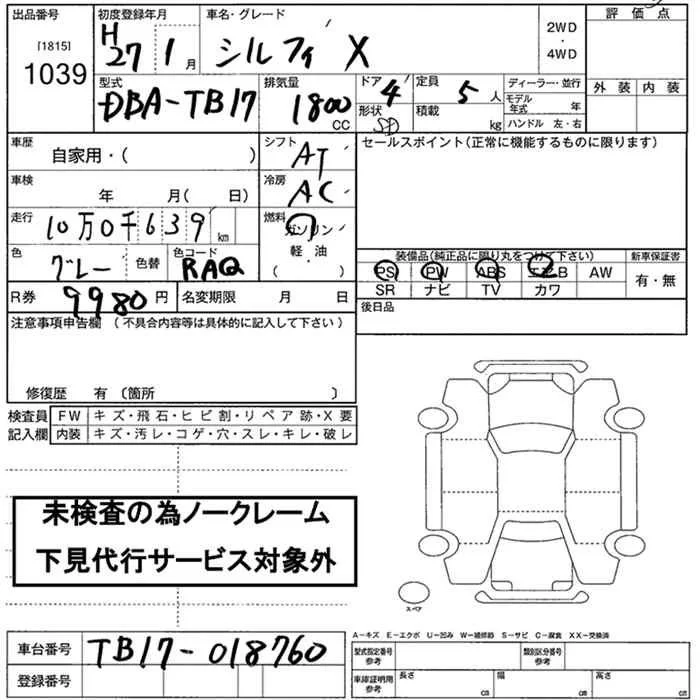 出品番号 初度登録年月 車名・グレード 評価点
[1815] 1039 H27 1月 シルフィ X 2WD・4WD
型式 排気量 ドア 定員 ディーラー・並行 外装 内装
DBA-TB17 1800 CC 4 5人 モデル年式 年
形状 SD 積載 kg ハンドル 左・右
車歴 シフト セールスポイント(正常に機能するものに限ります)
自家用・( ) AT
車検 冷房
年 月( 日) AC
走行 燃料
10万0千639km ガソリン
軽・油
( )
色 色替 色コード 装備品(純正品に限り丸をつけて下さい) 新車保証書
グレー RAQ PS PW ABS エアB AW 有・無
SR ナビ TV カワ
R券 9980円 名変期限 月 日 後日品
注意事項申告欄(不具合内容等は具体的に記入して下さい)
修復歴 有 〔箇所 〕
検査員 FW キズ・飛石・ヒビ割・リペア跡・X要
記入欄 内装 キズ・汚レ・コゲ・穴・スレ・キレ・破レ
未検査の為ノークレーム
下見代行サービス対象外
スペア
A-キズ E-エクボ U-凹み W-補修跡 S-サビ C-腐食 XX-交換済
車台番号 TB17-018760 型式指定番号 参考 類別区分番号 参考
登録番号 車庫証明用 参考 長さ cm 幅 cm 高さ cm